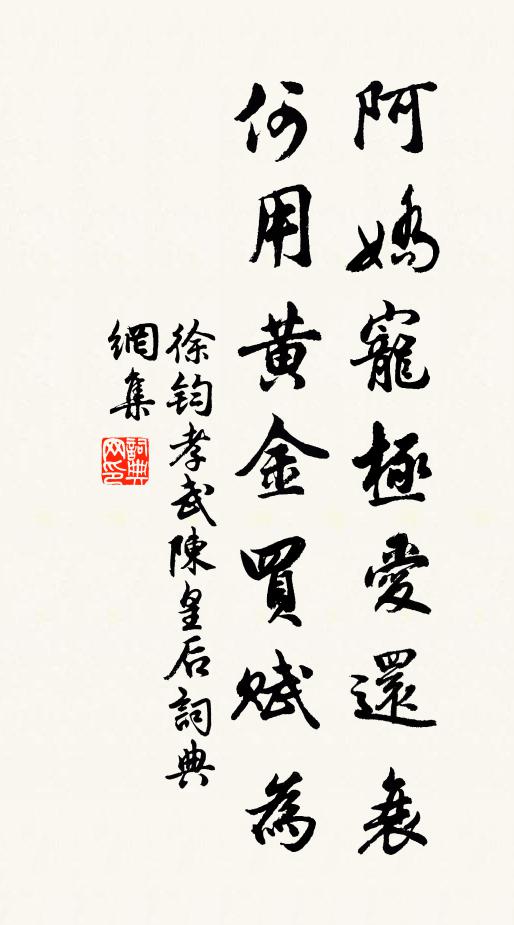 阿嬌寵極愛還衰
何用黃金買賦為
徐鈞孝武陳皇后詞典
網集
詞典網印